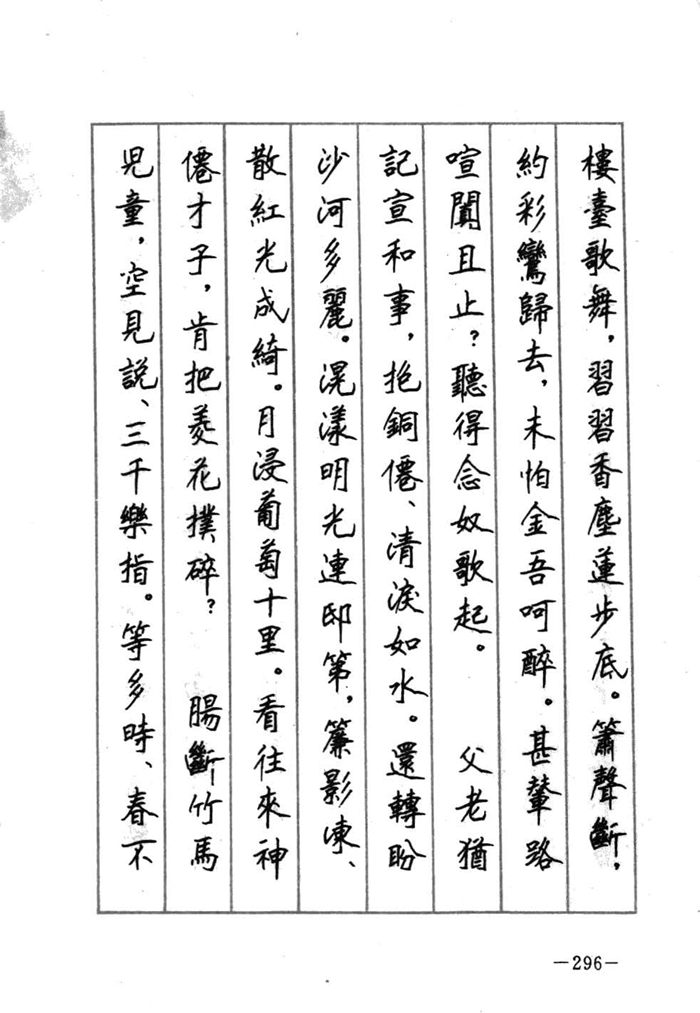 樓臺歌舞，習習香塵蓮步底。簫聲斷，
約彩鸞歸去，未怕金吾呵醉。甚輦路
喧闐且止？聽得念奴歌起。　父老猶
記宣和事，抱銅僊、清淚如水。還轉盼
沙河多麗。滉漾明光連邸第，簾影凍、
散紅光成綺。月浸葡萄十里。看往來神
僊才子，肯把菱花撲碎？　腸斷竹馬
児童，空見說、三千樂指。等多時、春不
—296—